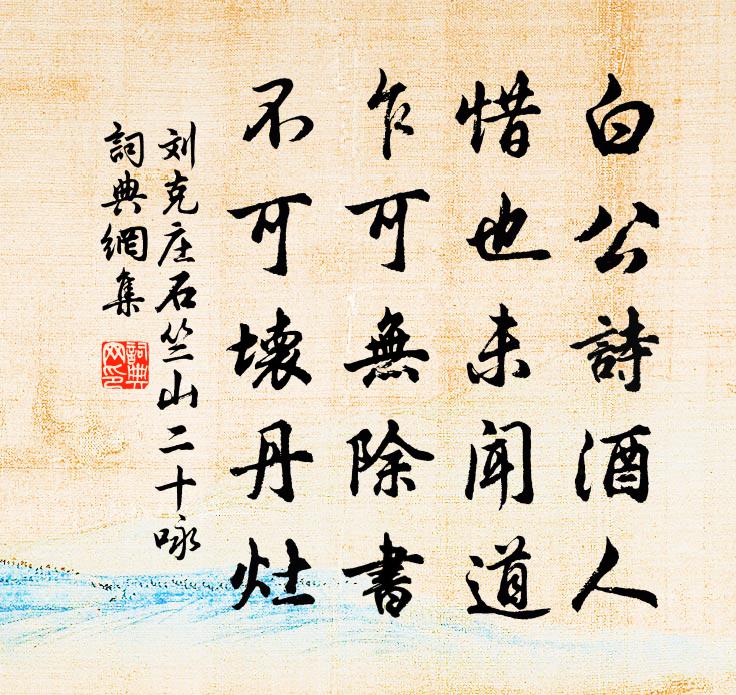 白公詩酒人
惜也未闻道
乍可無除書
不可壊丹灶
刘克庄石竺山二十咏
詞典網集
詞典
网印